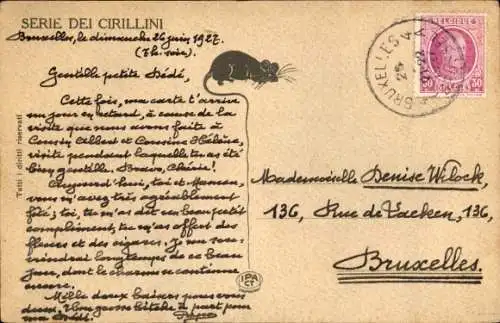 SERIE DEI CIRILLINI
Bruxelles, le dimanche 26 juin 1927.
(7h. soir).
Gentille petite Dédé,
Cette fois, ma carte t'arrive
un jour en retard, à cause de la
visite que nous avons faite à
Cousin Albert et Cousine Hélène,
visite pendant laquelle tu as été
bien gentille. Bravo, Chérie!
Aujourd'hui, toi et Maman,
vous m'avez très agréablement
fêté; toi, tu m'as dit un beau petit
compliment, tu m'as offert des
fleurs et des cigares. Je me sou-
viendrai longtemps de ce beau
jour, dont le charme se continue
encore.
Mille doux baisers pour vous
deux. Une grosse bêche à part pour
ma Dédé.
Tutti i diritti riservati
IPA
CT
BELGIQUE
50 50
BRUXELLES
BRUSSEL
Mademoiselle Denise Wilock,
136, Rue de Laeken, 136,
Bruxelles.